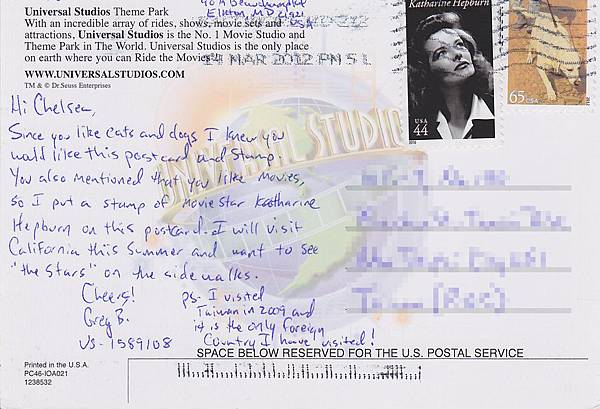 Universal Studios Theme Park
With an incredible array of rides, shows, movie sets and
attractions, Universal Studios is the No. 1 Movie Studio and
Theme Park in The World. Universal Studios is the only place
on earth where you can Ride the Movies!
WWW.UNIVERSALSTUDIOS.COM
TM & © Dr.Seuss Enterprises
Elkton, M.D. 21921
USA
14 MAR 2012 PM 5 L
Katharine Hepburn
USA
44
65 USA
UNIVERSAL STUDIO
Hi Chelsea,
Since you like cats and dogs I knew you
would like this postcard and stamp.
You also mentioned that you like movies,
so I put a stamp of movie star Katharine
Hepburn on this postcard. I will visit
California this summer and want to see
"the stars" on the sidewalks.
Cheers!
Greg B.
US-1589108
ps- I visited
Taiwan in 2009 and
it is the only foreign
Country I have visited!
SPACE BELOW RESERVED FOR THE U.S. POSTAL SERVICE
Printed in the U.S.A.
PC46-IOA021
1238532